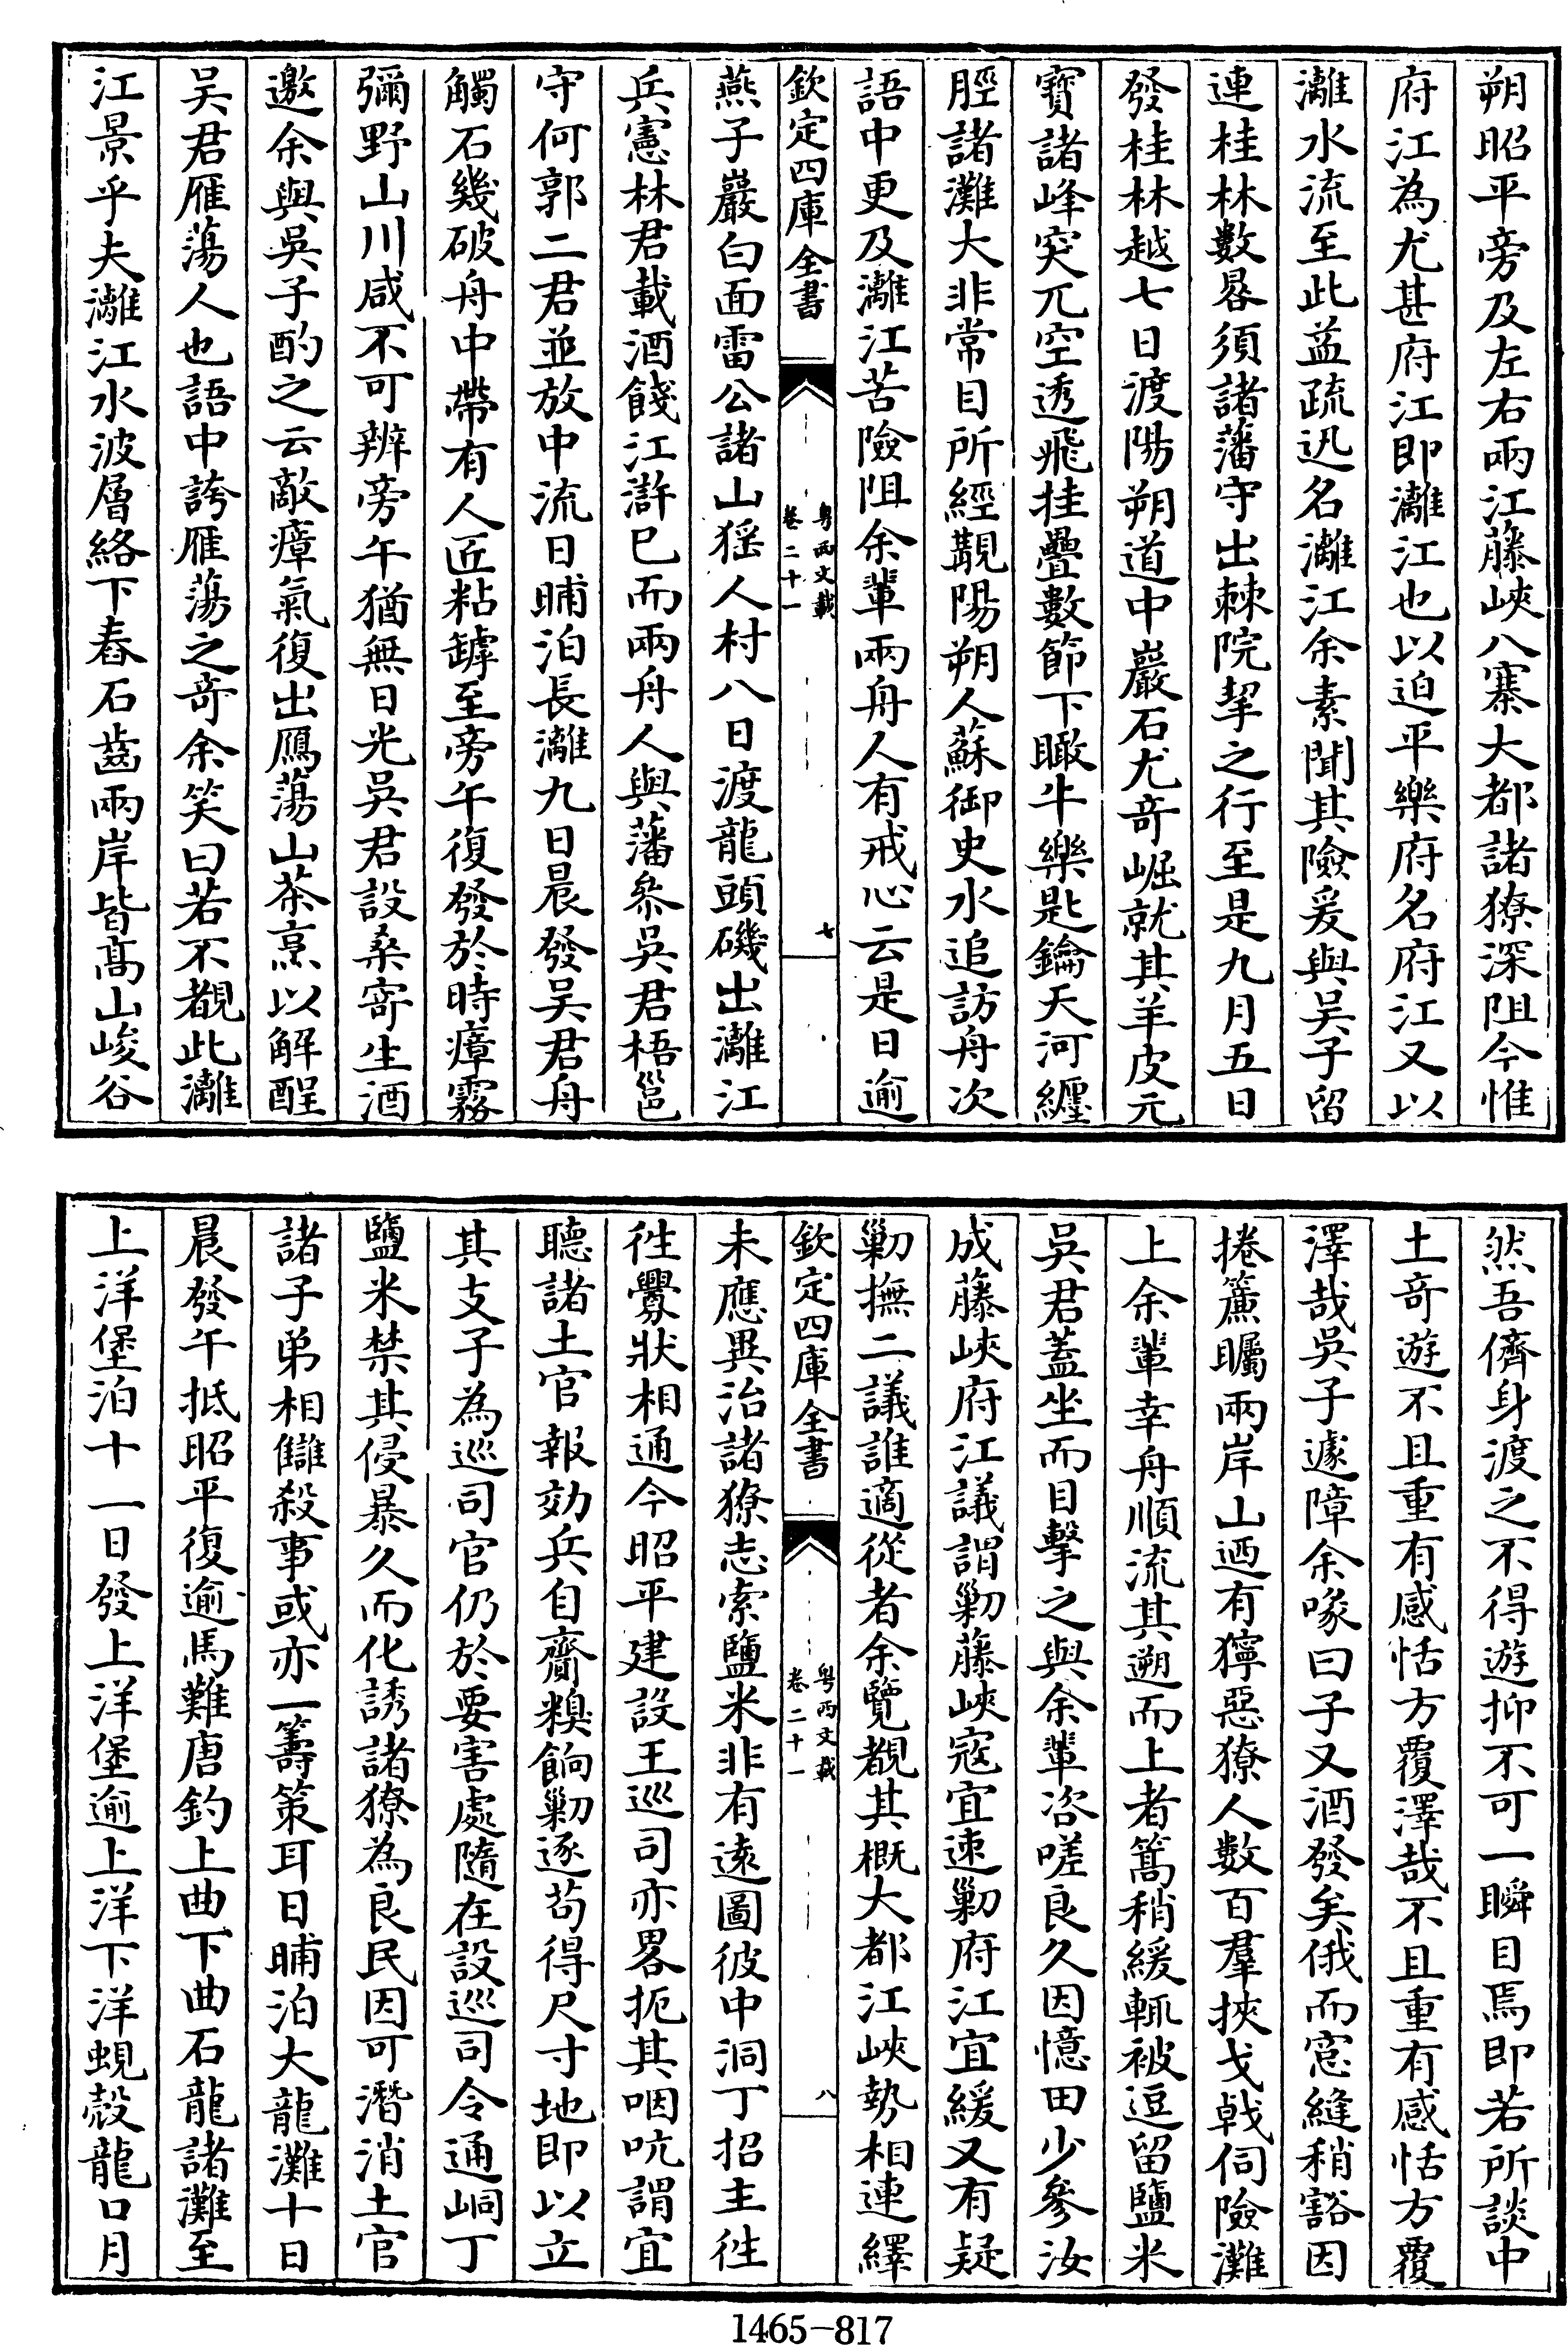 朔昭平旁及左右兩江藤峽八寨大都諸獠深阻今惟
府江為尤甚府江即灕江也以迫平樂府名府江又以
灕水流至此益疏迅名灕江余素聞其險爰與吳子留
連桂林數晷須諸藩守出棘院挈之行至是九月五日
發桂林越七日渡陽朔道中巖石尤奇崛就其羊皮元
寶諸峰突兀空透飛挂疊數節下瞰牛樂匙鑰天河纒
脛諸灘大非常目所經覩陽朔人蘇御史水追訪舟次
語中更及灕江苦險阻余輩兩舟人有戒心云是日逾
欽定四庫全書
粤西文載
卷二十一
七
燕子巖白面雷公諸山猺人村八日渡龍頭磯出灕江
兵憲林君載酒餞江滸巳而兩舟人與藩叅吳君梧邕
守何郭二君並放中流日晡泊長灕九日晨發吴君舟
觸石幾破舟中帶有人匠粘罅至旁午復發於時瘴霧
彌野山川咸不可辨旁午猶無日光吳君設桑寄生酒
邀余與吳子酌之云敵瘴氣復出鴈蕩山茶烹以解酲
吴君雁蕩人也語中誇雁蕩之奇余笑曰若不覩此灕
江景乎夫灕江水波層絡下舂石齒兩岸皆髙山峻谷
然吾儕身渡之不得遊抑不可一瞬目焉即若所談中
土奇遊不且重有感恬方覆澤哉不且重有感恬方覆
澤哉吳子遽障余喙曰子又酒發矣俄而窓縫稍豁因
捲簾矚兩岸山迺有獰惡獠人數百羣挾戈戟伺險灘
上余輩幸舟順流其遡而上者篙稍緩輒被逗留鹽米
吳君蓋坐而目擊之與余輩咨嗟良久因憶田少參汝
成藤峽府江議謂勦藤峽寇宜速勦府江宜緩又有疑
勦撫二議誰適從者余覽覩其概大都江峽勢相連繹
欽定四庫全書
粤西文載
卷二十一
八
未應異治諸獠志索鹽米非有遠圖彼中洞丁招主徃
徃釁狀相通今昭平建設王巡司亦畧扼其咽吭謂宜
聽諸土官報効兵自齎糗餉勦逐苟得尺寸地即以立
其支子為巡司官仍於要害處隨在設巡司令通峒丁
鹽米禁其侵暴久而化誘諸獠為良民因可潛消土官
諸子弟相讎殺事或亦一籌策耳日晡泊大龍灘十日
晨發午抵昭平復逾馬難唐釣上曲下曲石龍諸灘至
上洋堡泊十一日發上洋堡逾上洋下洋蜆殻龍口月
1465-817